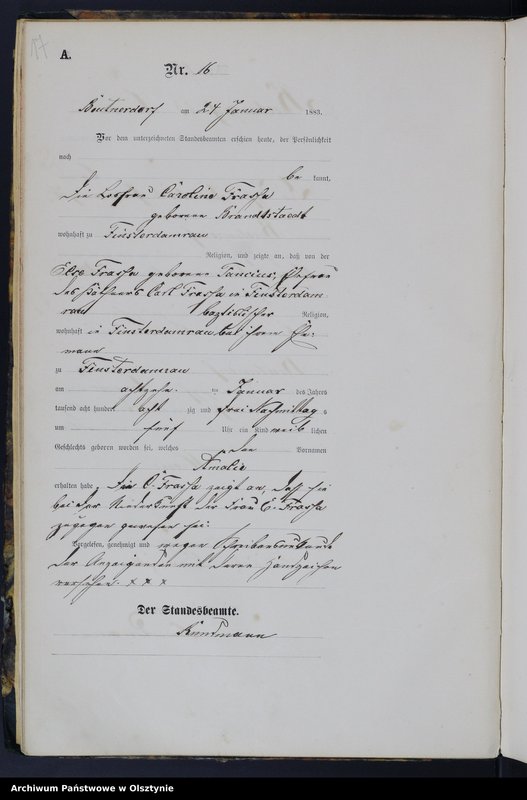 A.
Nr. 16
Beutnerdorf am 24 Januar 1883.
Vor dem unterzeichneten Standesbeamten erschien heute, der Persönlichkeit
nach
be kannt,
die Losfrau Caroline Trassa
geborene Brandtstaedt
wohnhaft zu Finsterdamrau
Religion, und zeigte an, daß von der
Trassa geborene Ehefrau
des Käthners Carl Trassa in Finsterdam
rau baptistischer Religion,
wohnhaft in Finsterdamrau bei ihrem Ehe-
mann
zu Finsterdamrau
am achtzehn ten Januar des Jahres
tausend acht hundert acht zig und drei Nachmittags
um fünf Uhr ein Kind weib lichen
Geschlechts geboren worden sei, welches den Vornamen
Amalie
erhalten habe. Die C. Trassa zeigt an, daß sie
bei der Niederkunft der Frau E. Trassa
zugegen gewesen sei.
Vorgelesen, genehmigt und wegen Schreibensunkunde
der Anzeigenden mit deren Handzeichen
versehen. x x x
Der Standesbeamte.
Archiwum Państwowe w Olsztynie